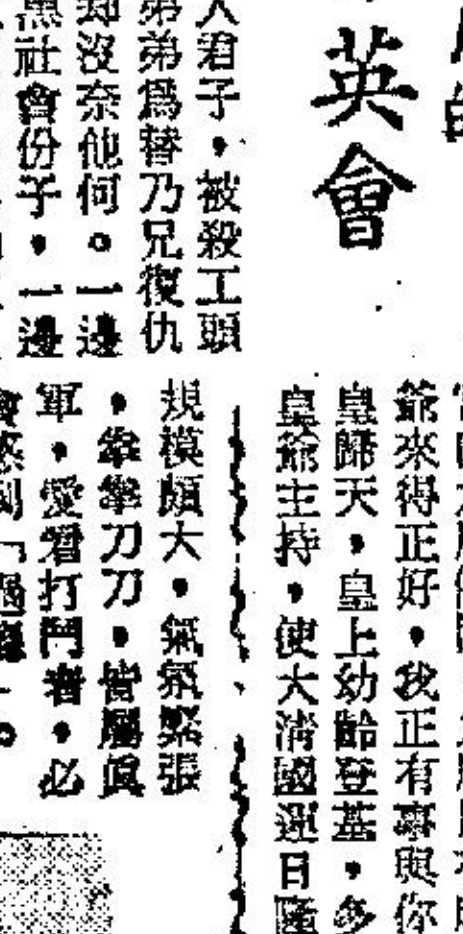 英會
人君子，被殺工頭
弟弟爲替乃兄復仇
却沒奈他何。一邊
黑社會份子，一邊
爺來得正好，我正有事與你
皇歸天，皇上幼齡登基，多
皇爺主持，使大清國運日隆
規模頗大，氣氛緊張
，拳拳刀刀，皆屬眞
軍，愛看打鬥者，必
會感到「過癮」。